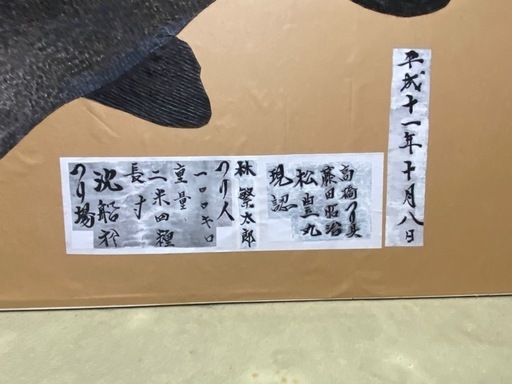 平成十一年十月八日
高橋つり具
藤田昭治
松豊丸
現認
林繁太郎
つり人
一〇〇キロ
重量
二米四糎
長寸
沈船
つり場